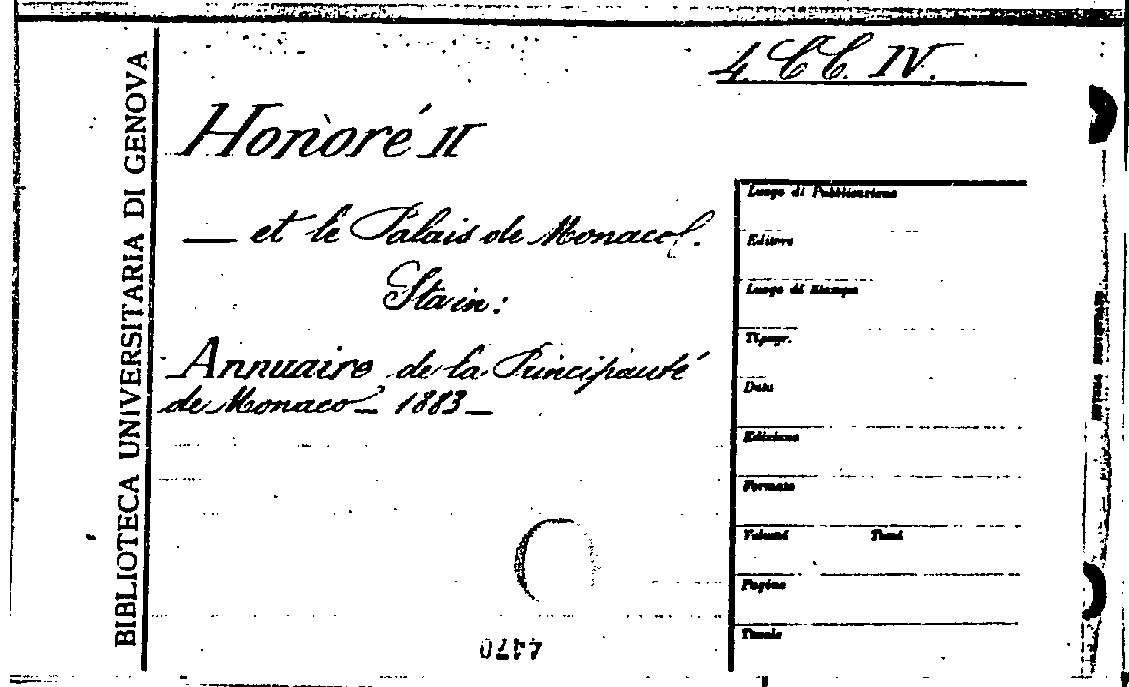 BIBLIOTECA UNIVERSITARIA DI GENOVA
4. CC. IV.
Honoré II
— et le Palais de Monaco.
Sta in:
Annuaire de la Principauté
de Monaco — 1883 —
Luogo di Pubblicazione
Editore
Luogo di Stampa
Tipogr.
Data
Edizione
Formato
Volumi
Tomi
Pagine
4470